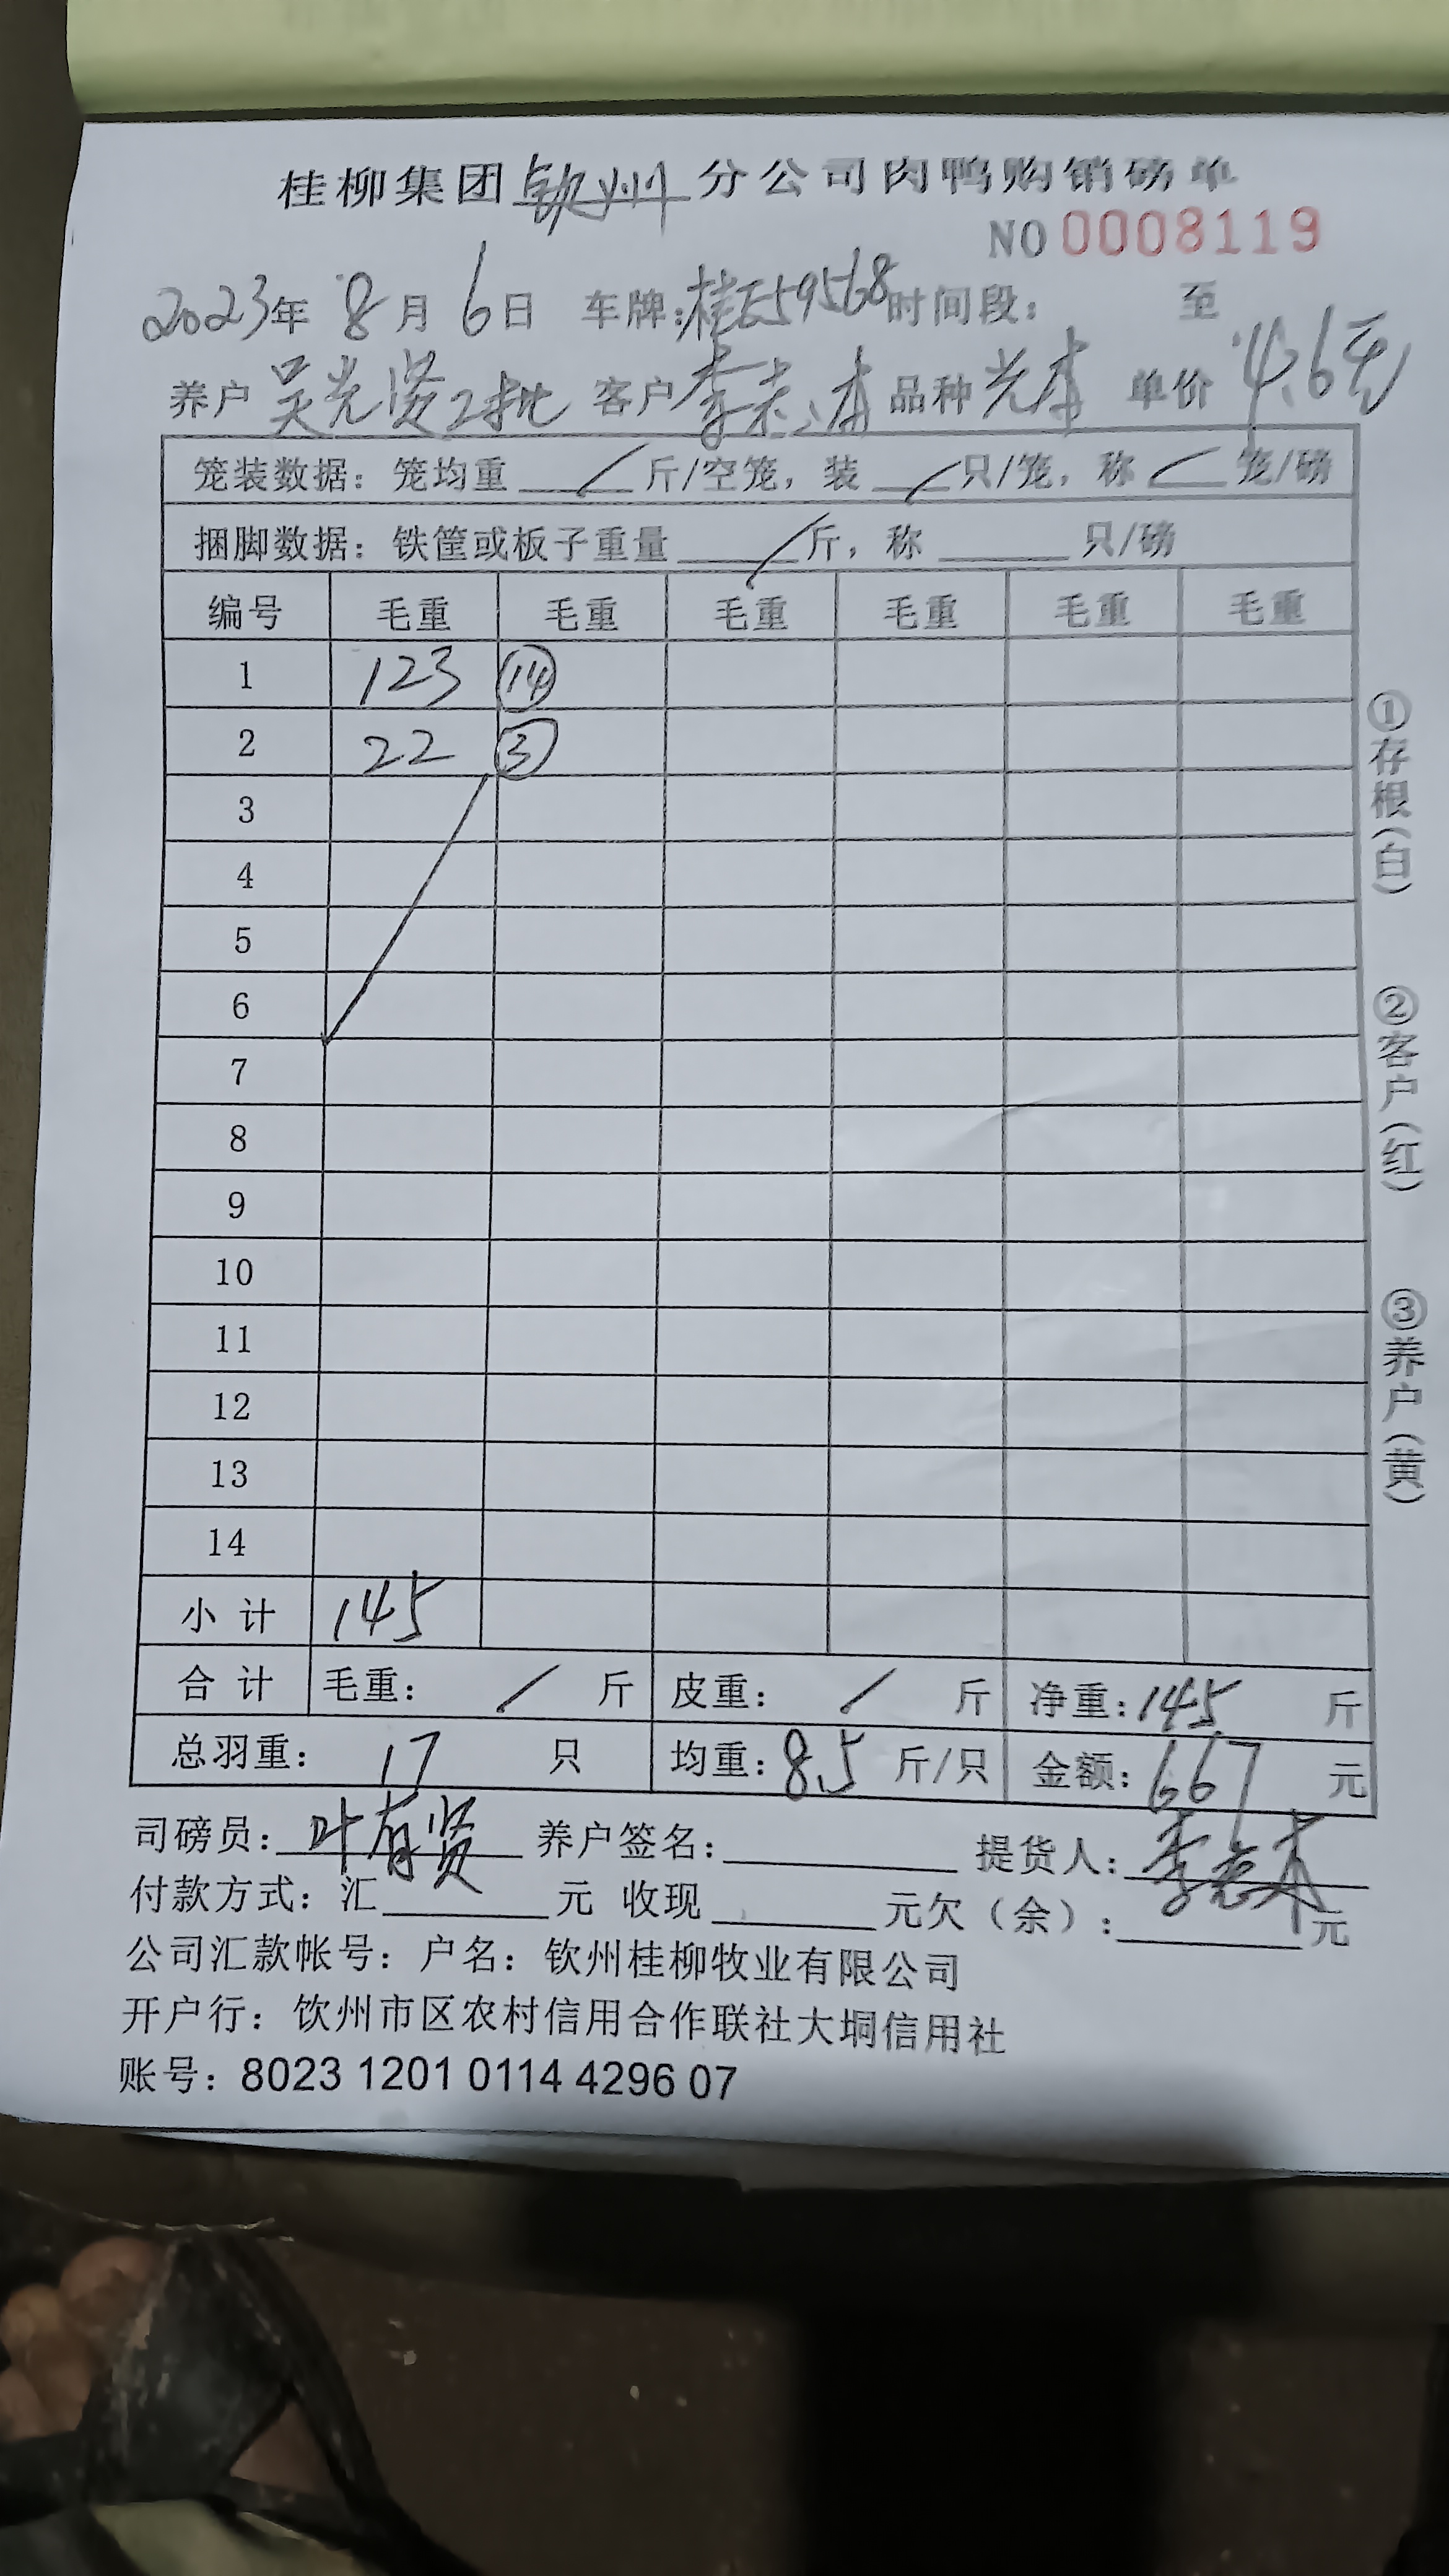 桂柳集团钦州分公司肉鸭购销磅单
NO 0008119
2023年 8月 6日 车牌:桂E59568时间段: 至
养户 吴光贤2批 客户 李 品种 单价 4.6元
笼装数据: 笼均重 ___ 斤/空笼, 装 ___ 只/笼, 称 ___ 笼/磅
捆脚数据: 铁筐或板子重量 ___ 斤, 称 ___ 只/磅
编号 毛重 毛重 毛重 毛重 毛重 毛重
1 123 ⑭
2 22 ③
3
4
5
6
7
8
9
10
11
12
13
14
小计 145
合计 毛重: / 斤 皮重: / 斤 净重: 145 斤
总羽重: 17 只 均重: 8.5 斤/只 金额: 667 元
司磅员: 叶有贤 养户签名: 提货人: 李
付款方式: 汇 ___ 元 收现 ___ 元欠(余): ___ 元
公司汇款帐号: 户名: 钦州桂柳牧业有限公司
开户行: 钦州市区农村信用合作联社大垌信用社
账号: 8023 1201 0114 4296 07
①存根(白)
②客户(红)
③养户(黄)